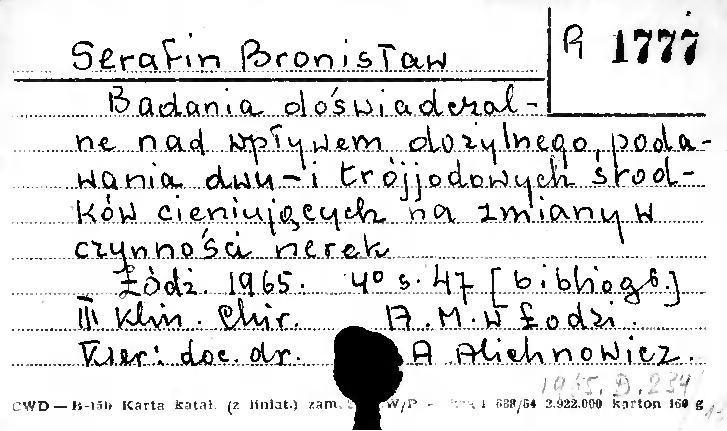 Serafin Bronisław
R 1777
Badania doświadczal-
ne nad wpływem dożylnego, poda-
wania dwu-i trójjodowych środ-
ków cieniujących na zmiany w
czynności nerek
Łódź. 1965. 4° s. 47 [bibliogr.]
III Klin. Chir. A.M. w Łodzi.
Kier: doc. dr. A Alichnowicz.
1965. D. 234
CWD — B-15b Karta katal. (z liniat.) zam. W/P 688/64 3.922.000 karton 160 g